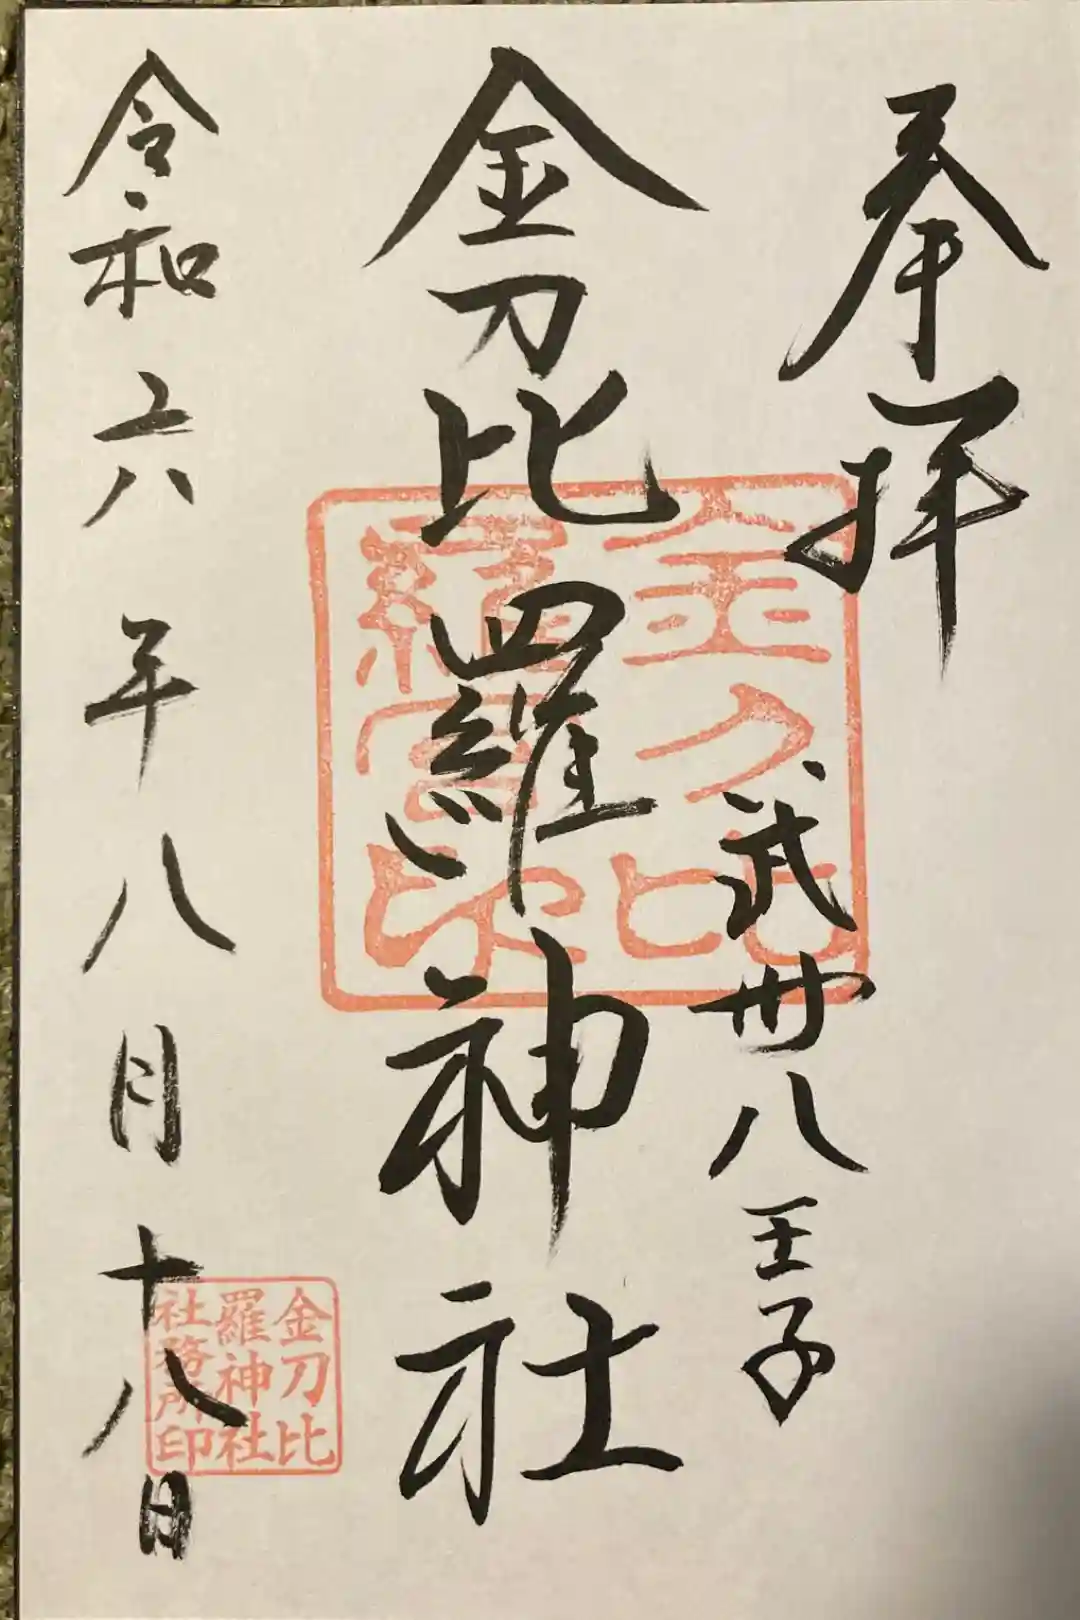 奉拝
武州八王子
金刀比羅神社
令和六年八月十八日
金刀比
羅神社
社務所印